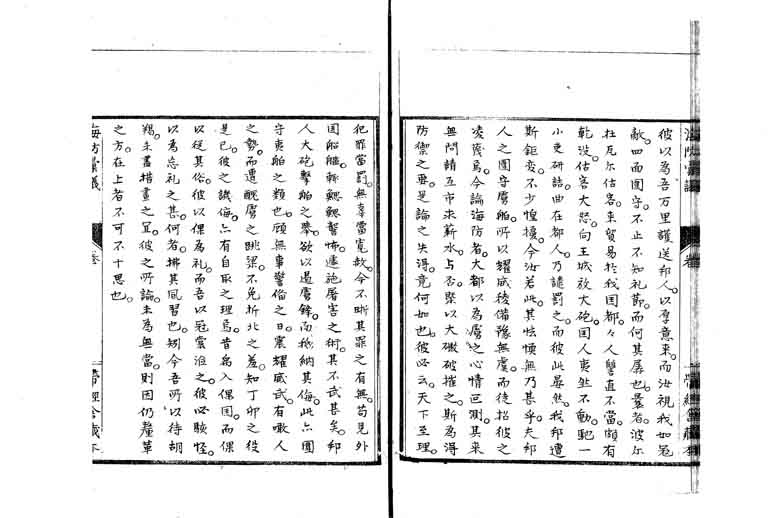 彼以為吾万里護送邦人以厚意来而汝視我如寇
敵四面囲守不止不知礼節而何其孱也曩者波尓
杜瓦尓估客来貿易於我国都々人讐直不當頗有
乾没估客大怒向王城放大砲国人夷然不動馳一
小吏研詰曲在都人乃譴罰之而彼此晏然我邦遭
斯鉅变不少惶擾今汝若此其怯愞無乃甚乎夫邦
人之囲守虜舶所以耀威後備豫無虞而徒招彼之
凌蔑焉今論海防者大都以為虜之心情叵測其来
無問請互市求薪水与否槩以大礟破摧之斯為得
防禦之要是論之失得竟何如也彼必云天下至理
犯罪當罰無辜當寛故今不晰其罪之有無苟見外
国船艫輙鰓鰓驚怖遽施屠害之術其不武甚矣邦
人大砲撃舶之挙欲以遏虜鋒而祗納其侮此亦囲
守夷舶之類也顧無事警偹之日震耀威武有噉人
之勢而遭醜虜之跳梁不免折北之羞知丁卯之役
是已彼之譏侮亦有自取之理焉昔禹入倮国而倮
以従其俗彼以倮為礼而吾以冠裳淮之彼必駭怪
以為忘礼之甚何者拂其風習也矧今吾所以待胡
羯未盡措畫之宜彼之所論未為無當則因仍釐革
之方在上者不可不十思也
海防彙議
巻